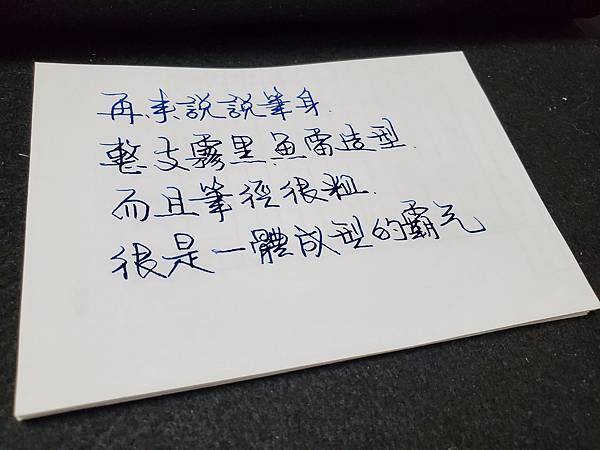 再來說說筆身.
整支霧黑魚雷造型.
而且筆徑很粗.
很是一體成型的霸氣